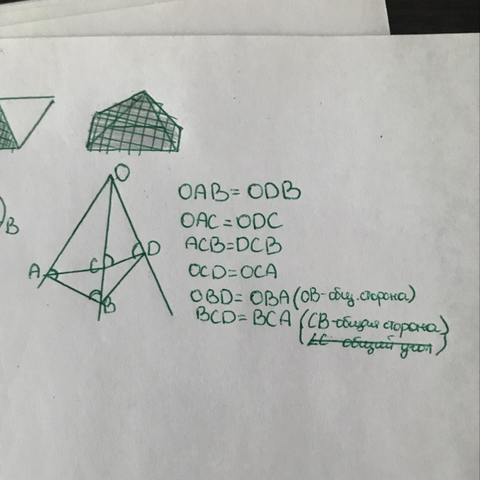 O
B
A
C
D
B
OAB = ODB
OAC = ODC
ACB = DCB
OCD = OCA
OBD = OBA (OB-общ. сторона)
BCD = BCA (CB-общая сторона)
(∠C- общий угол)